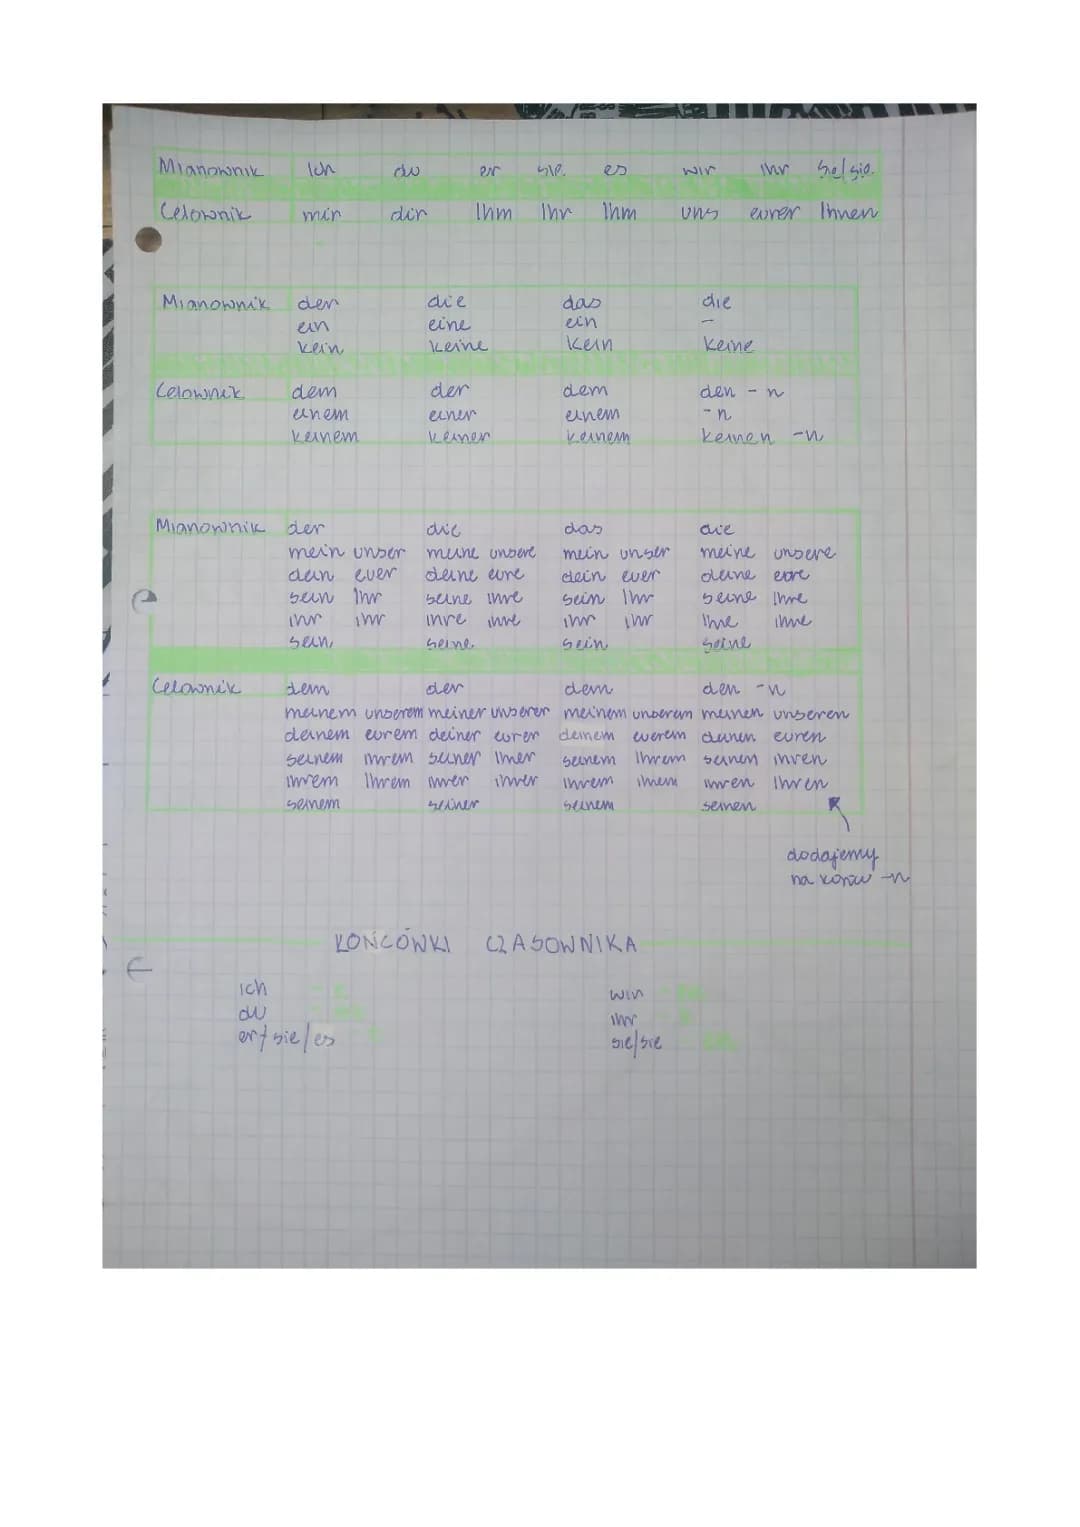 Mianownik ich du er sie es wir ihr sie/sie
Celownik mir dir ihm ihr ihm uns eurer Ihnen
Mianownik der die das die
ein eine ein -
kein keine kein keine
Celownik dem der dem den -n
einem einer einem -n
keinem keiner keinem keinen -n
Mianownik der die das die
mein unser meine unsere mein unser meine unsere
dein euer deine eure dein euer deine eure
sein Ihr seine ihre sein Ihr seine Ihre
ihr ihr ihre ihre ihr ihr Ihre ihre
sein seine sein seine
Celownik dem der dem den -n
meinem unserem meiner unserer meinem unserem meinen unseren
deinem eurem deiner eurer deinem euerem deinen euren
seinem ihrem seiner Ihrer seinem Ihrem seinen ihren
ihrem Ihrem ihrer ihrer ihrem ihrem ihren Ihren
seinem seiner seinem seinen
dodajemy
na końcu -n
KOŃCÓWKI CZASOWNIKA
ich - e win - en
du - ihr - t
er/sie/es - t sie/sie - en